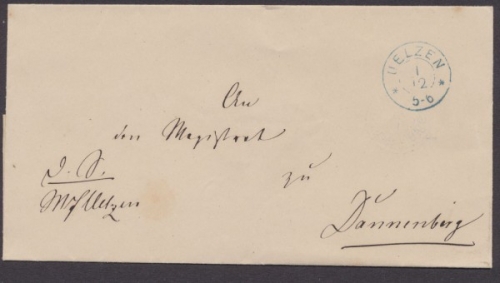 UELZEN
1
12
5-6
An
den Magistrat
D. S.
zu
Dannenberg